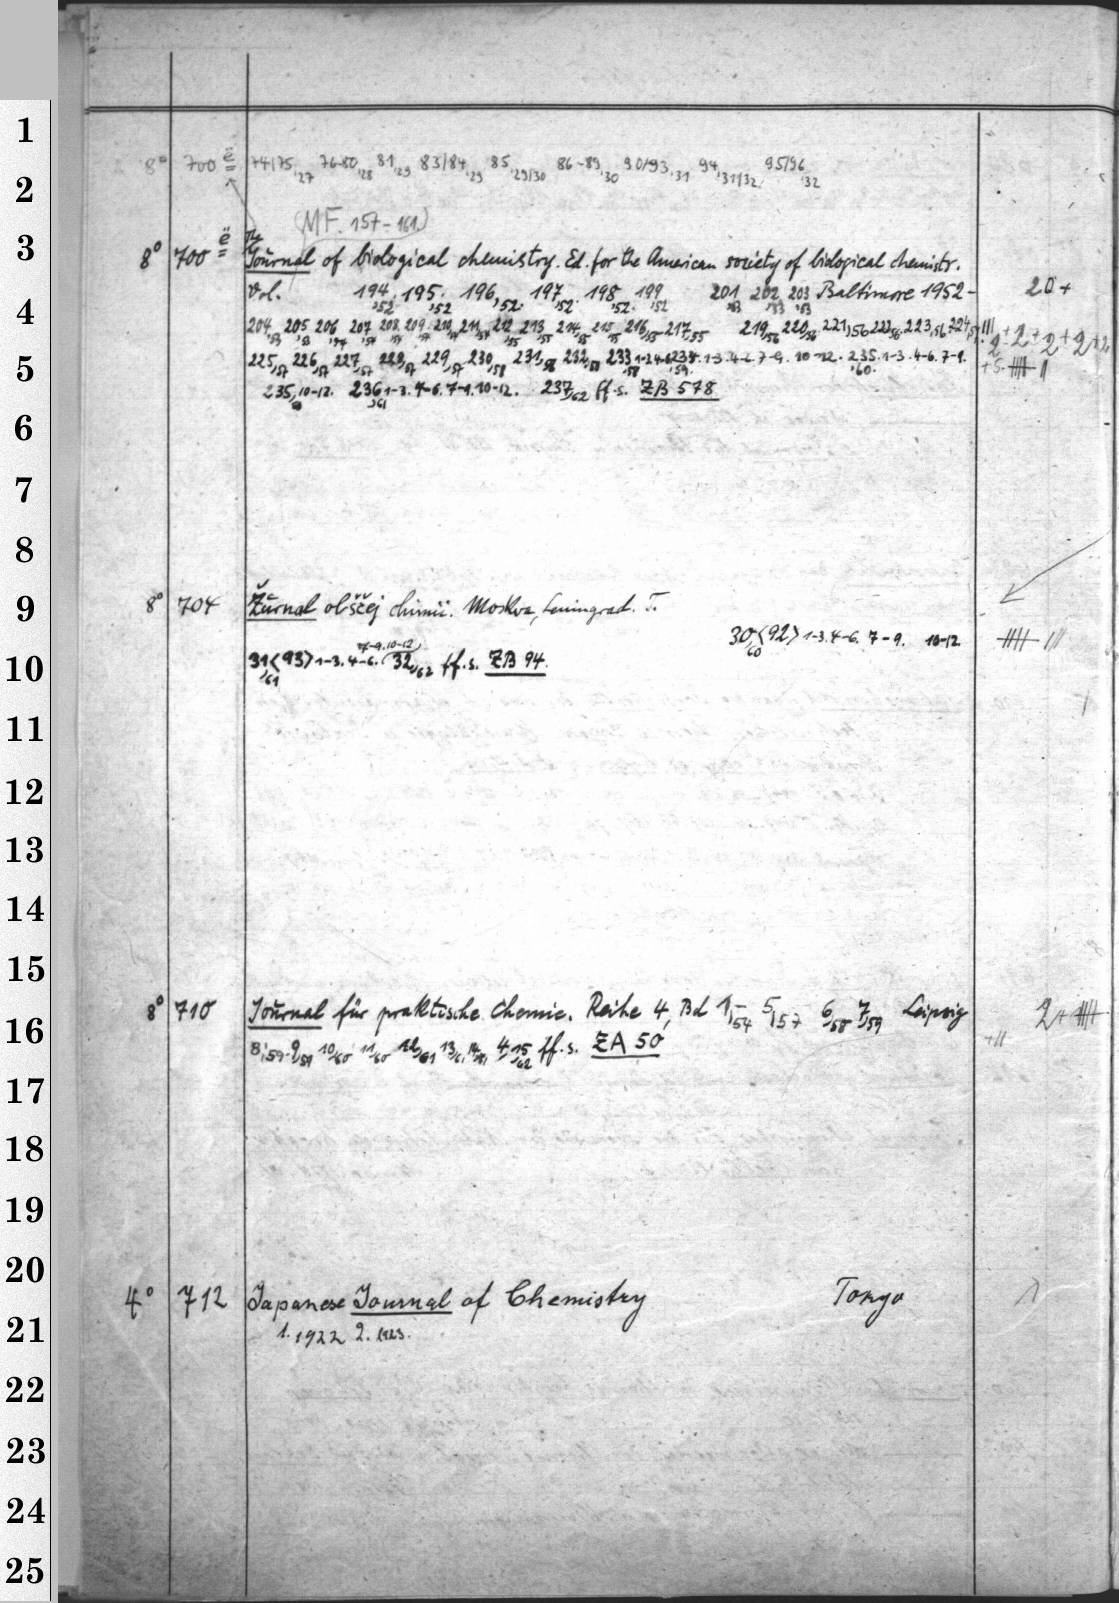 1
2
3
4
5
6
7
8
9
10
11
12
13
14
15
16
17
18
19
20
21
22
23
24
25
8° 700 ë 74/75,'27 76-80,'28 81,'29 83/84,'29 85,'29/30 86-89,'30 90/93,'31 94,'31/32 95/96,'32
(MF. 157-161)
8° 700 ë Journal of biological chemistry. Ed. for the American society of biological chemistr.
Vol. 194,'52 195,'52 196,'52 197,'52 198,'52 199,'52 201,'53 202,'53 203,'53 Baltimore 1952- 20+
204,'53 205,'53 206,'54 207,'54 208,'54 209,'54 210,'54 211,'54 212,'55 213,'55 214,'55 215,'55 216,'55 217,'55 219,'56 220,'56 221,'56 222,'56 223,'56 224,'57 +2+2+2+2
225,'57 226,'57 227,'57 228,'57 229,'57 230,'58 231,'58 232,'58 233,'58 234,'59 1-3. 4-6. 7-9. 10-12. 235,'60 1-3. 4-6. 7-9.
235,'60 10-12. 236,'61 1-3. 4-6. 7-9. 10-12. 237,'62 ff. s. ZB 578
8° 704 Žurnal obščej chimii. Moskva, Leningrad. T.
30,'60 <92> 1-3. 4-6. 7-9. 10-12.
7-9. 10-12
31,'61 <93> 1-3. 4-6. 32,'62 ff. s. ZB 94.
8° 710 Journal für praktische Chemie. Reihe 4, Bd 1,'54- 5,'57 6,'58 7,'59 Leipzig 2+
8,'59-9,'59 10/60 11/60 12/61 13/61 14/61 4,15/62 ff. s. ZA 50
4° 712 Japanese Journal of Chemistry Tokyo 1
1. 1922 2. 1923.